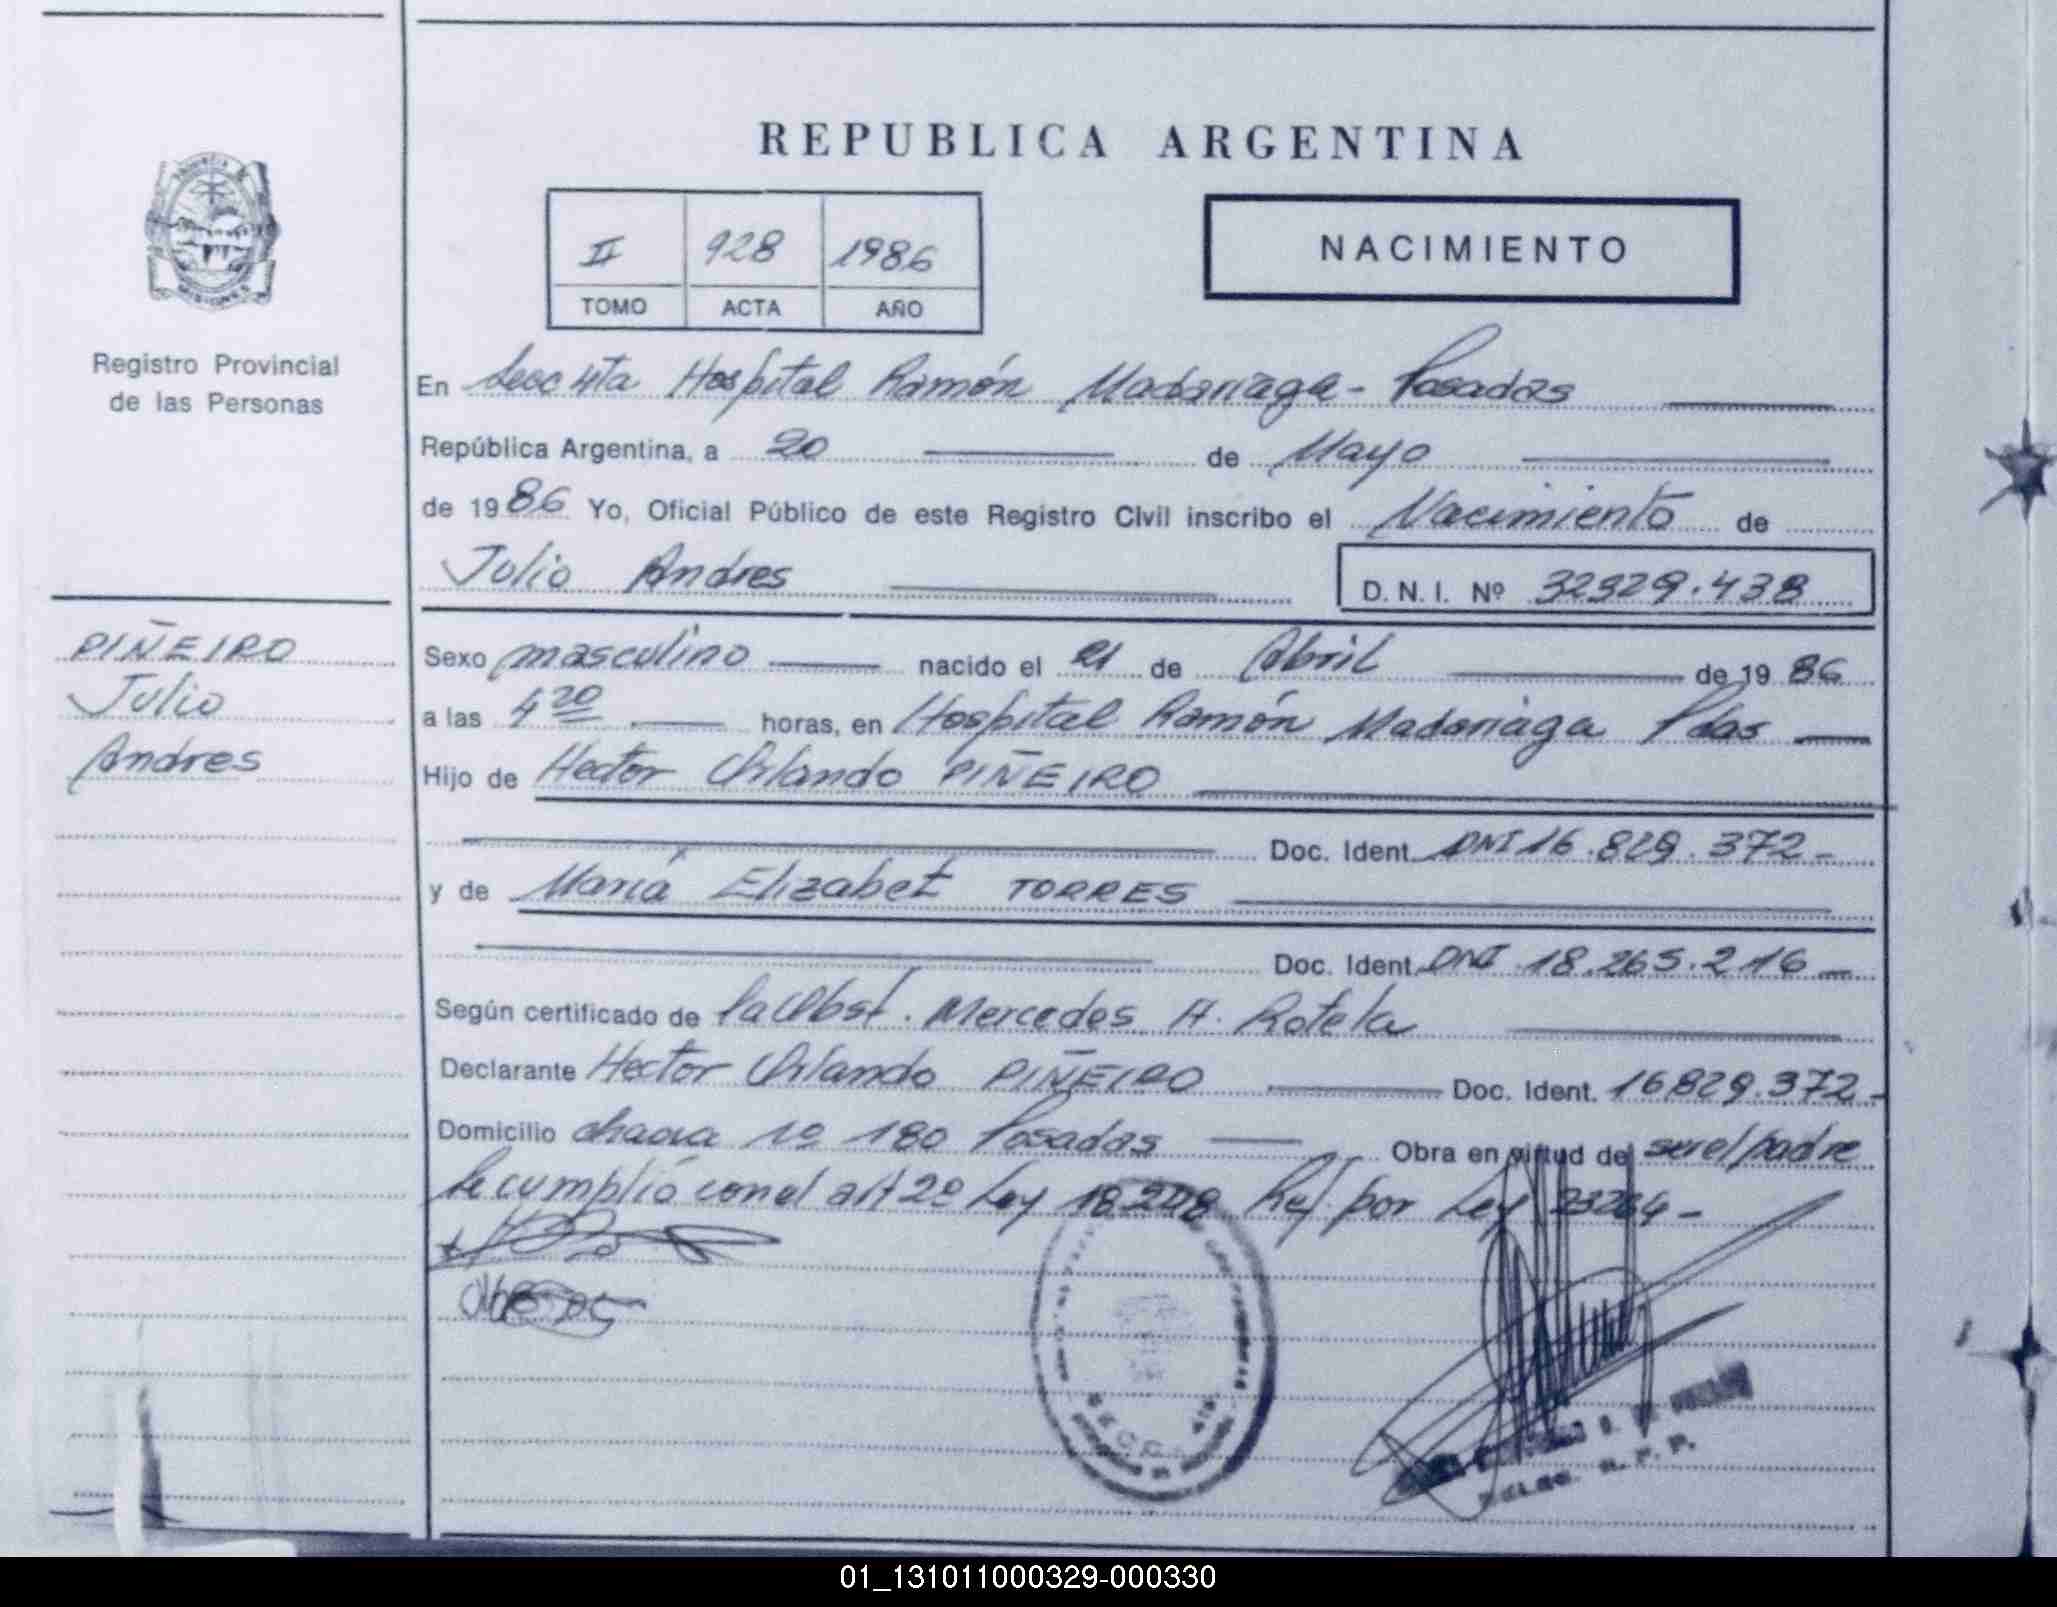 REPUBLICA ARGENTINA
II 928 1986
TOMO ACTA AÑO
NACIMIENTO
PROVINCIA DE
MISIONES
Registro Provincial
de las Personas
En Secc 4ta Hospital Ramón Madariaga - Posadas
República Argentina, a 20 de Mayo
de 1986 Yo, Oficial Público de este Registro Civil inscribo el Nacimiento de
Julio Andres
D. N. I. Nº 32329.438
PIÑEIRO
Julio
Andres
Sexo masculino nacido el 21 de Abril de 1986
a las 4 20 horas, en Hospital Ramón Madariaga Pdas
Hijo de Hector Orlando PIÑEIRO
Doc. Ident. DNI 16.829.372-
y de María Elizabet TORRES
Doc. Ident. DNI 18.265.216
Según certificado de la Obst. Mercedes A. Rotela
Declarante Hector Orlando PIÑEIRO Doc. Ident. 16829.372-
Domicilio chacra nº 180 Posadas Obra en virtud de ser el padre
Se cumplió con el art 2º Ley 18.248 Ref. por Ley 23264-
R. P. P.
01_131011000329-000330